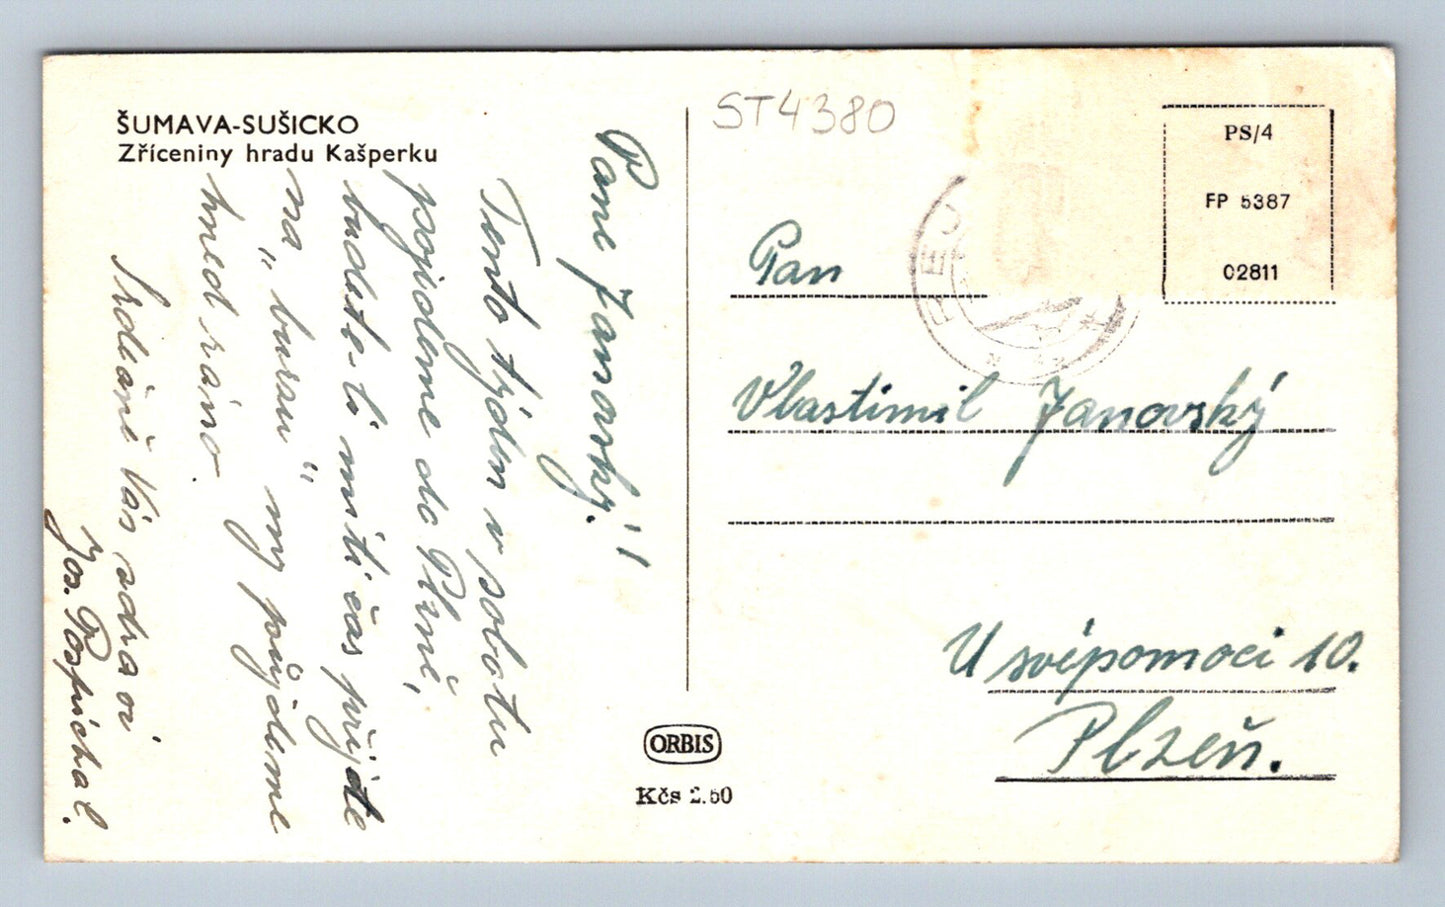 ŠUMAVA-SUŠICKO
Zříceniny hradu Kašperku
Pane Janovský!
Tento týden v sobotu
pojedeme do Plzně,
budete-li míti čas přijďte
na „bursu“ my půjdeme
hned ráno.
Srdečně Vás zdraví
Jos. Pospíchal.
ST4380
PS/4
FP 5387
02811
Pan
Vlastimil Janovský
U svépomoci 10.
Plzeň.
ORBIS
Kčs 2.60